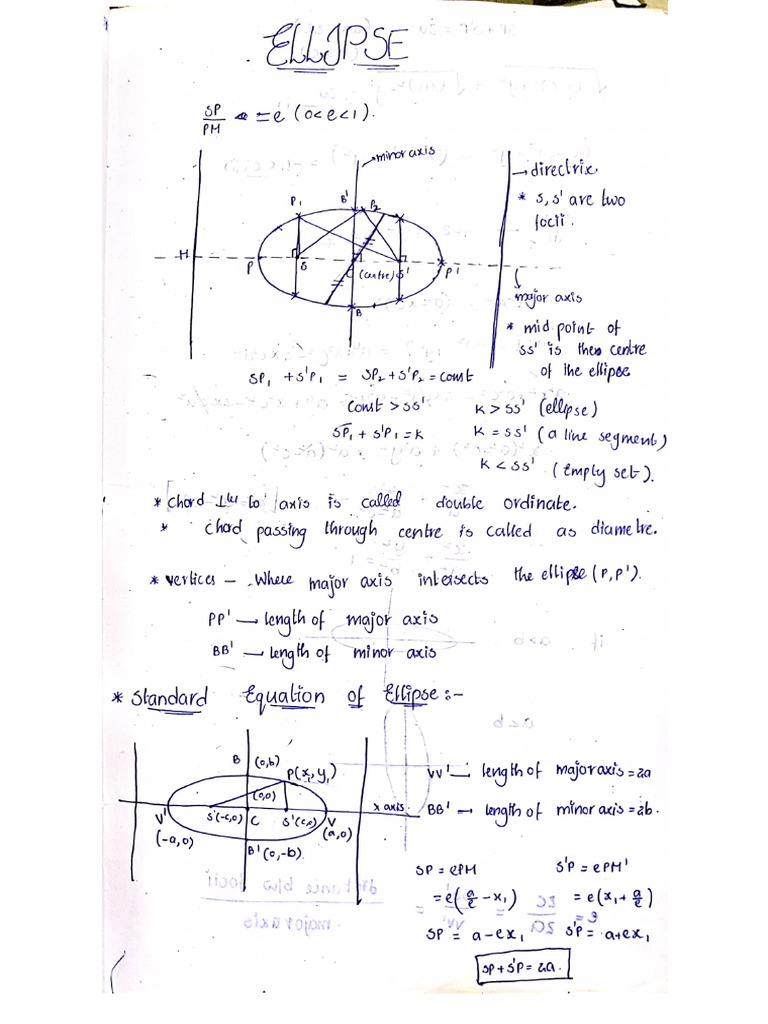 ELLIPSE
SP/PM = e (0<e<1).
minor axis
→ directrix
* S, S' are two
focii.
P1 B' P2
H P S (centre) S' P'
B
major axis
* mid point of
SS' is then centre
of the ellipse
SP1 + S'P1 = SP2 + S'P2 = const
Const > SS' K > SS' (ellipse)
SP1 + S'P1 = K K = SS' (a line segment)
K < SS' (Empty set).
* chord ⊥lar to axis is called double ordinate.
* chord passing through centre is called as diametre.
* vertices – Where major axis intersects the ellipse (P, P').
PP' → length of major axis
BB' → length of minor axis
* Standard Equation of Ellipse :-
B (0,b) P(x1, y1)
(0,0)
V' S'(-c,0) C S'(c,0) V x axis
(-a,0) (a,0)
B' (0,-b)
VV' — length of major axis = 2a
BB' → length of minor axis = 2b.
SP = ePM S'P = ePM'
= e(a/e - x1) = e(x1 + a/e)
SP = a - ex1 S'P = a + ex1
SP + S'P = 2a.